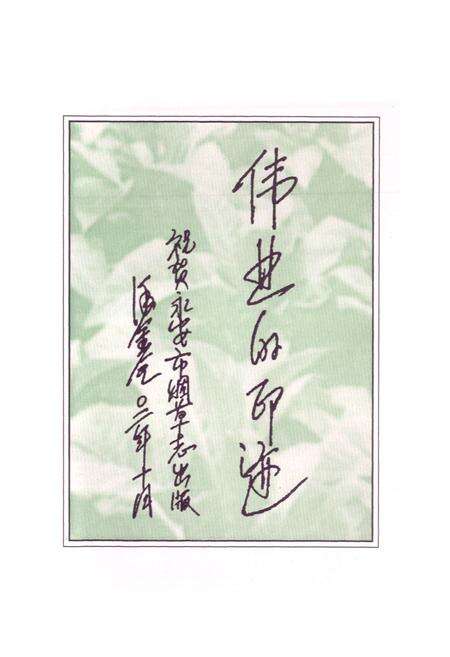 伟业的印迹
祝贺永安市烟草志出版
〇二年十月